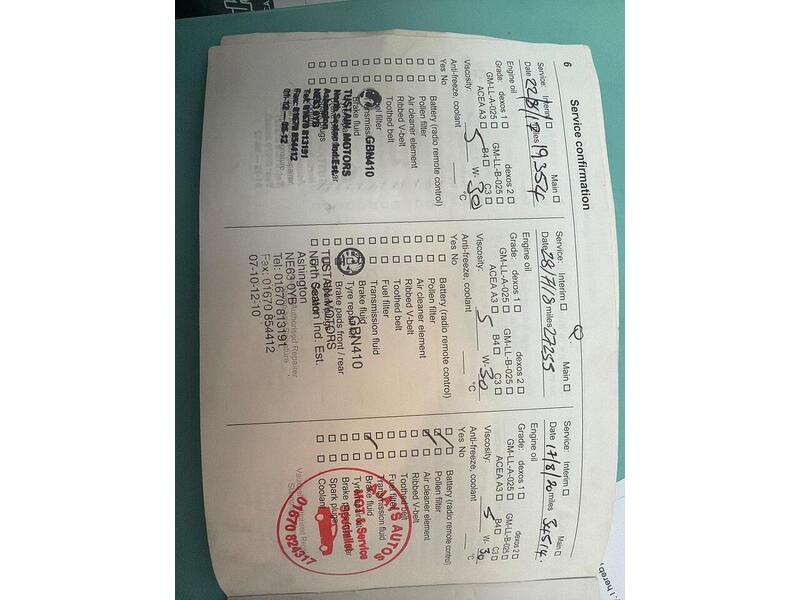 6
Service confirmation
Service: Interim Main
Date 22/8/17 miles 19354
Engine oil
Grade: dexos 1 dexos 2
GM-LL-A-025 GM-LL-B-025
ACEA A3 B4 C3
Viscosity: 5 W- 30
Anti-freeze, coolant °C
Yes No
Battery (radio remote control)
Pollen filter
Air cleaner element
Ribbed V-belt
Toothed belt
Fuel filter
GBN410
Brake fluid
TUSTAIN MOTORS
North Seaton Ind. Est.
Ashington
NE63 0YB
Tel: 01670 813191
Fax: 01670 854412
Service: Interim Main
Date 28/7/18 miles 27255
Engine oil
Grade: dexos 1 dexos 2
GM-LL-A-025 GM-LL-B-025
ACEA A3 B4 C3
Viscosity: 5 W- 30
Anti-freeze, coolant °C
Yes No
Battery (radio remote control)
Pollen filter
Air cleaner element
Ribbed V-belt
Toothed belt
Fuel filter
Transmission fluid
Brake fluid
GBN410
Brake pads front / rear
TUSTAIN MOTORS
North Seaton Ind. Est.
Ashington
NE63 0YB
Tel: 01670 813191
Fax: 01670 854412
07-10-12-10
Service: Interim Main
Date 17/8/20 miles 34514
Engine oil
Grade: dexos 1 dexos 2
GM-LL-A-025 GM-LL-B-025
ACEA A3 B4 C3
Viscosity: 5 W- 30
Anti-freeze, coolant °C
Yes No
Battery (radio remote control)
Pollen filter
Air cleaner element
Ribbed V-belt
Toothed belt
Transmission fluid
Brake fluid
Spark plugs
Coolant
AUTOS
MOT & Service
Specialist
01670 824317
I hereby